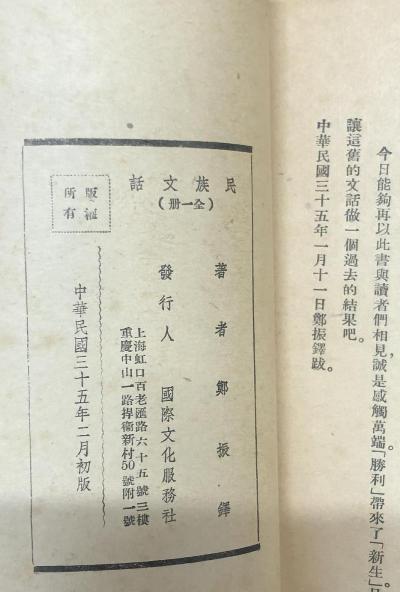 今日能夠再以此書與讀者們相見，誠是感觸萬端。「勝利」帶來了「新生」，
讓這舊的文話做一個過去的結果吧。
中華民國三十五年一月十一日鄭振鐸跋。
民族文話
（全一册）
著者 鄭振鐸
發行人 國際文化服務社
上海虹口百老匯路六十五號三樓
重慶中山一路捍衞新村50號附一號
版權
所有
中華民國三十五年二月初版